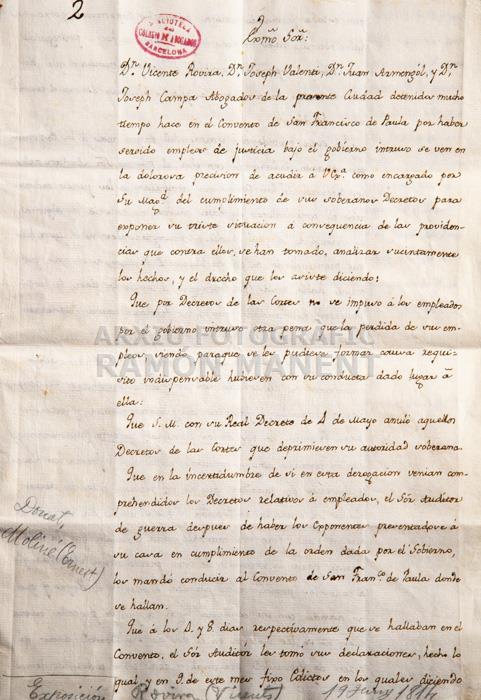 2
BIBLIOTECA
del
COLEGIO DE ABOGADOS
BARCELONA
Exmo Sor:
Dn. Vicente Rovira, Dn. Joseph Valenti, Dn. Juan Armengól, y Dn.
Joseph Campa Abogados de la presente Ciudad detenidos mucho
tiempo hace en el Convento de San Francisco de Paula por haber
servido empleos de justicia bajo el gobierno intruso se ven en
la dolorosa precision de acudir á V.Exa. como encargado por
Su Magd. del cumplimiento de sus soberanos Decretos para
exponer su triste situacion á consequencia de las providen-
cias que contra ellos, se han tomado, analizar sucintamente
los hechos, y el drecho que los asiste diciendo:
Que por Decretos de las Cortes no se impuso á los empleados
por el gobierno intruso otra pena que la perdida de sus em-
pleos siendo paraque se les pudiese formar causa requi-
sito indispensable hubiesen con su conducta dado lugar á
ella:
Que S. M. con su Real Decreto de 4 de Mayo anuló aquellos
Decretos de las Cortes que deprimiesen su autoridad soberana.
Que en la incertidumbre de si en esta derogacion venian com-
prehendidos los Decretos relativos á empleados, el Sór Auditor
de guerra despues de haber los Opponentes presentadose á
su casa en cumplimiento de la orden dada por el Gobierno,
los mandó conducir al Convento de San Franco. de Paula donde
se hallan.
Que á los 4. y 8. dias respectivamente que se hallaban en el
Convento, el Sór Auditór les tomó sus declaraciones, hecho lo
qual, y en 9. de este mes fixo Edictos en los quales diciendo
Donat,
Moliné (Ernest)
Exposición Rovira (Vicente) 19 Juny 1814
ARXIU FOTOGRÀFIC
RAMÓN MANENT